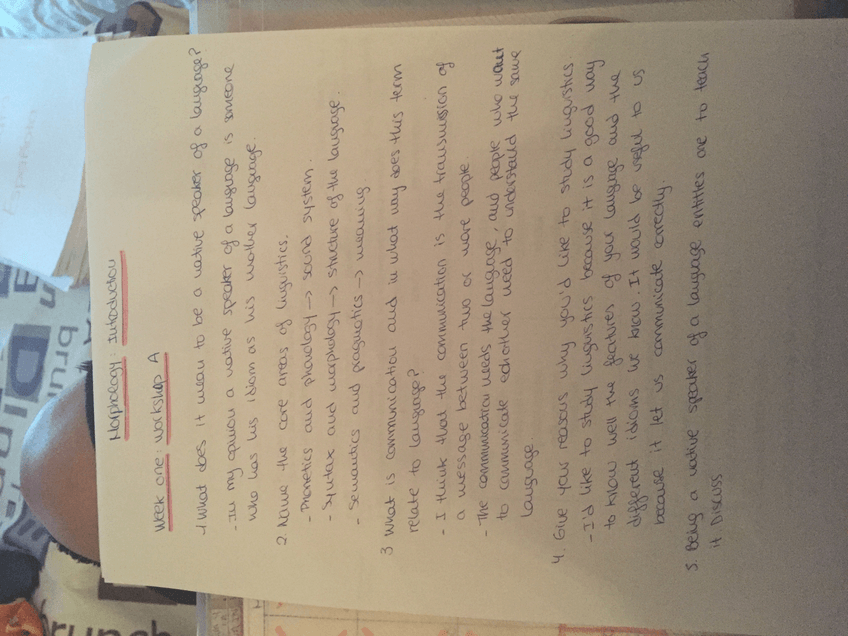 Morphology: Introduction
Week one: workshop A
1 What does it mean to be a native speaker of a laugrage?
- In my opinion a native speaker of a laugrage is someone
who has his idiom as his mother laugrage.
2. Name the core areas of linguistics.
- Phonetics and phonology → sound system.
- Syntax and morphology → structure of the laugrage.
- Semantics and pragmatics → meaning
3 What is communication and in what way does this term
relate to laugrage?
- I think that the communication is the transmission of
a message between two or more people
- The communication needs the laugrage, and people who want
to communicate eachother need to understand the same
laugrage
4. Give your reasons why you'd like to study linguistics
- I'd like to study linguistics because it is a good way
to know well the features of your laugrage and the
different idioms we know. It would be useful to us
because it let us communicate correctly.
5. Being a native speaker of a laugrage entitles one to teach
it. Discuss
brunch